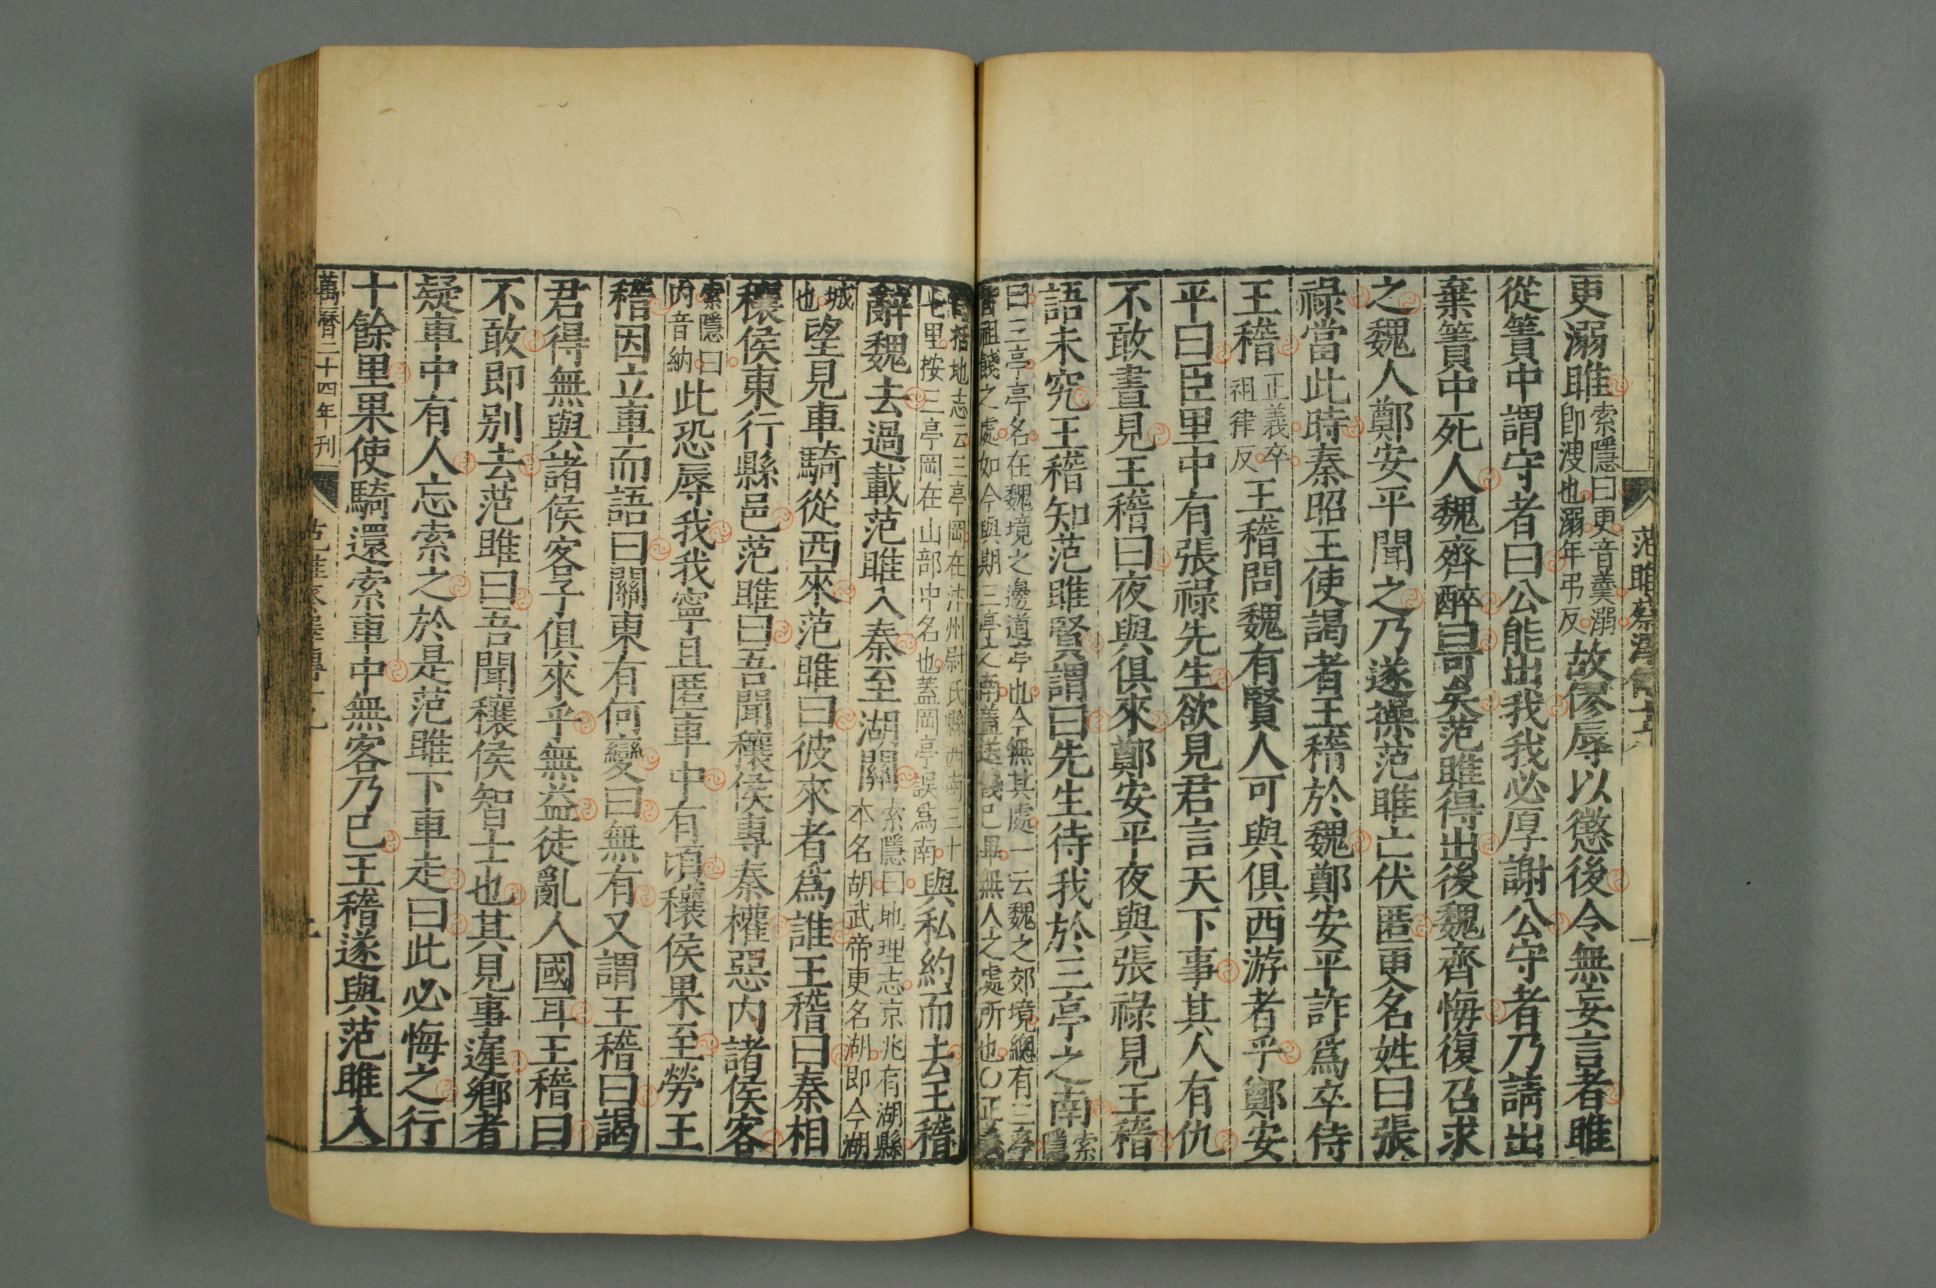 范雎蔡澤傳十九
更溺雎索隱曰更音羹溺即溲也溺年弔反故僇辱以懲後令無妄言者雎
從簀中謂守者曰公能出我我必厚謝公守者乃請出
棄簀中死人魏齊醉曰可矣范雎得出後魏齊悔復召求
之魏人鄭安平聞之乃遂操范雎亡伏匿更名姓曰張
祿當此時秦昭王使謁者王稽於魏鄭安平詐爲卒侍
王稽正義卒祖律反王稽問魏有賢人可與俱西游者乎鄭安
平曰臣里中有張祿先生欲見君言天下事其人有仇
不敢晝見王稽曰夜與俱來鄭安平夜與張祿見王稽
語未究王稽知范雎賢謂曰先生待我於三亭之南索隱
曰三亭亭名在魏境之邊道亭也今無其處一云魏之郊境緫有三亭
皆祖餞之處如今與期三亭之南蓋送餞已畢無人之處所也○正義
括地志云三亭岡在汴州尉氏縣西南三十
七里按三亭岡在山部中名也蓋岡亭誤爲南與私約而去王稽
辭魏去過載范雎入秦至湖關索隱曰地理志京兆有湖縣本名胡武帝更名湖即今湖
城也望見車騎從西來范雎曰彼來者爲誰王稽曰秦相
穰侯東行縣邑范雎曰吾聞穰侯專秦權惡內諸侯客
索隱曰內音納此恐辱我我寧且匿車中有頃穰侯果至勞王
稽因立車而語曰關東有何變曰無有又謂王稽曰謁
君得無與諸侯客子俱來乎無益徒亂人國耳王稽曰
不敢即别去范雎曰吾聞穰侯智士也其見事遲鄉者
疑車中有人忘索之於是范雎下車走曰此必悔之行
十餘里果使騎還索車中無客乃已王稽遂與范雎入
萬曆二十四年刊